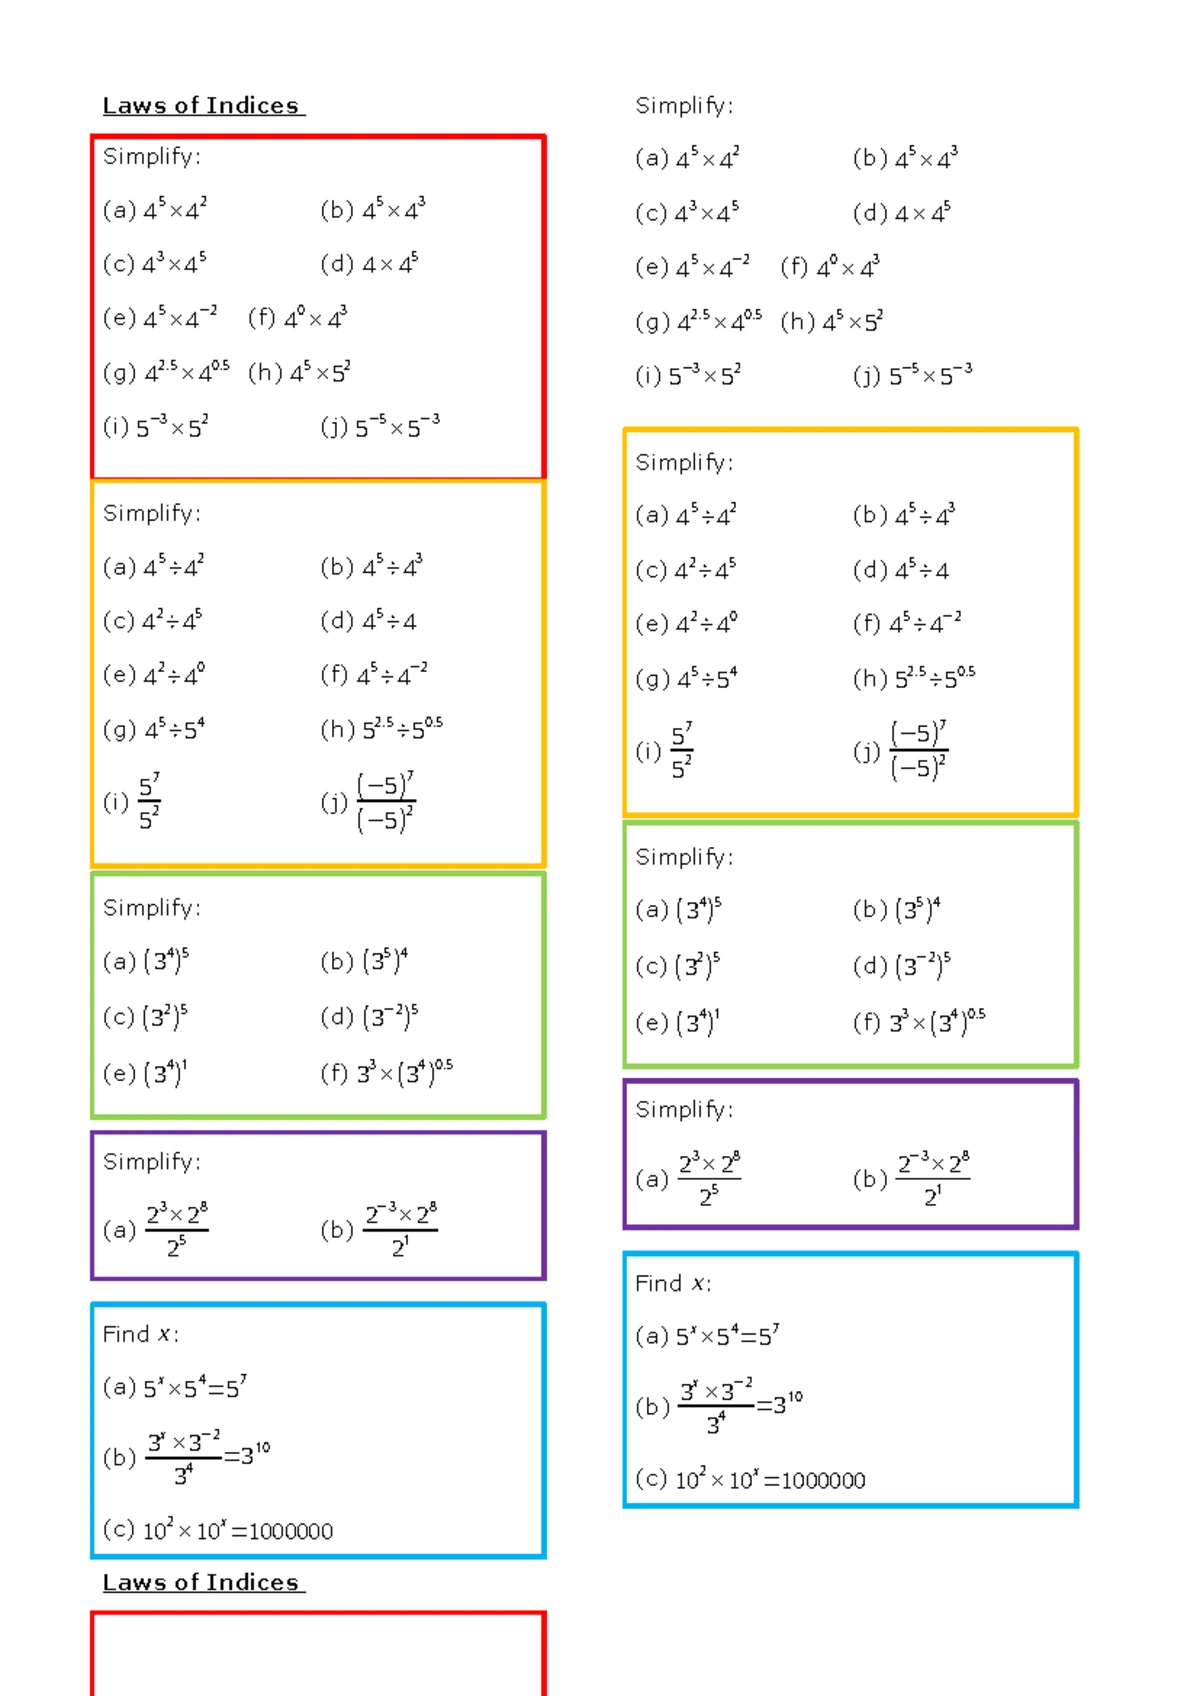 Laws of Indices
Simplify:
(a) 4⁵×4² (b) 4⁵×4³
(c) 4³×4⁵ (d) 4×4⁵
(e) 4⁵×4⁻² (f) 4⁰×4³
(g) 4^2.5×4^0.5 (h) 4⁵×5²
(i) 5⁻³×5² (j) 5⁻⁵×5⁻³
Simplify:
(a) 4⁵÷4² (b) 4⁵÷4³
(c) 4²÷4⁵ (d) 4⁵÷4
(e) 4²÷4⁰ (f) 4⁵÷4⁻²
(g) 4⁵÷5⁴ (h) 5^2.5÷5^0.5
(i) 5⁷/5² (j) (−5)⁷/(−5)²
Simplify:
(a) (3⁴)⁵ (b) (3⁵)⁴
(c) (3²)⁵ (d) (3⁻²)⁵
(e) (3⁴)¹ (f) 3³×(3⁴)^0.5
Simplify:
(a) 2³×2⁸/2⁵ (b) 2⁻³×2⁸/2¹
Find x:
(a) 5ˣ×5⁴=5⁷
(b) 3ˣ×3⁻²/3⁴=3¹⁰
(c) 10²×10ˣ=1000000
Laws of Indices
Simplify:
(a) 4⁵×4² (b) 4⁵×4³
(c) 4³×4⁵ (d) 4×4⁵
(e) 4⁵×4⁻² (f) 4⁰×4³
(g) 4^2.5×4^0.5 (h) 4⁵×5²
(i) 5⁻³×5² (j) 5⁻⁵×5⁻³
Simplify:
(a) 4⁵÷4² (b) 4⁵÷4³
(c) 4²÷4⁵ (d) 4⁵÷4
(e) 4²÷4⁰ (f) 4⁵÷4⁻²
(g) 4⁵÷5⁴ (h) 5^2.5÷5^0.5
(i) 5⁷/5² (j) (−5)⁷/(−5)²
Simplify:
(a) (3⁴)⁵ (b) (3⁵)⁴
(c) (3²)⁵ (d) (3⁻²)⁵
(e) (3⁴)¹ (f) 3³×(3⁴)^0.5
Simplify:
(a) 2³×2⁸/2⁵ (b) 2⁻³×2⁸/2¹
Find x:
(a) 5ˣ×5⁴=5⁷
(b) 3ˣ×3⁻²/3⁴=3¹⁰
(c) 10²×10ˣ=1000000